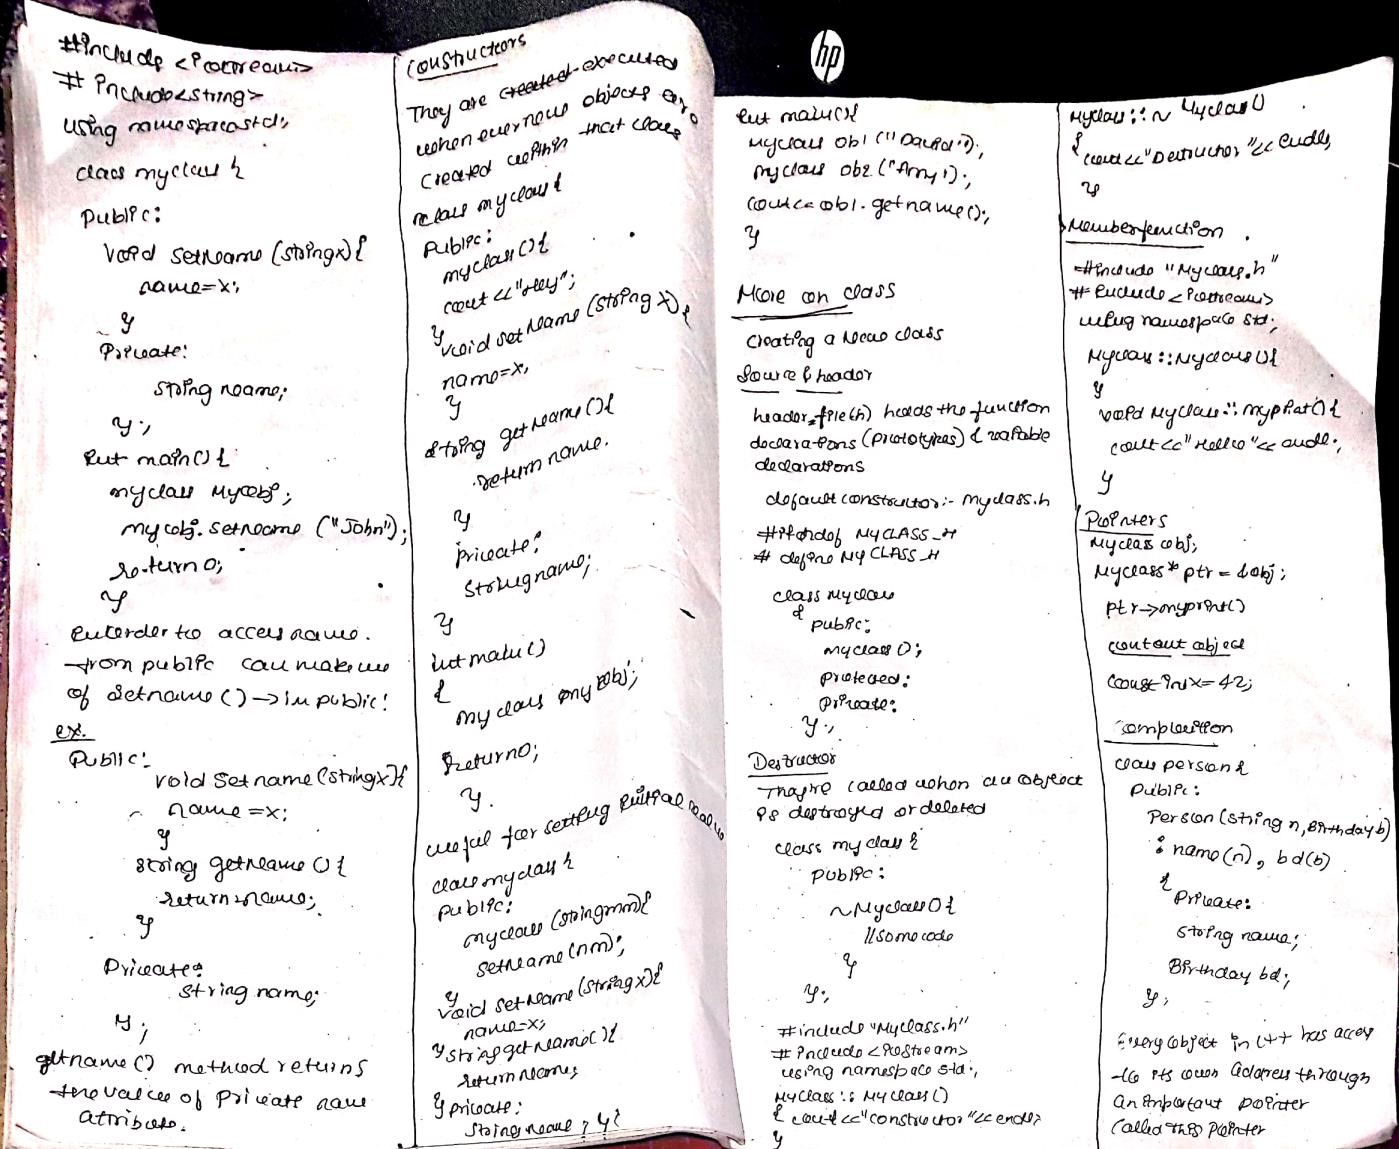 #include <iostream>
# include<string>
using namespace std;
class myclass {
public:
void setName (string x) {
name=x;
}
Private:
string name;
};
int main() {
myclass Myobj;
myobj.setname ("John");
return 0;
}
In order to access name.
from public can make use
of setname () → in public!
ex.
Public:
void Setname (string x) {
name = x;
}
string getName () {
return name;
}
Private:
string name;
};
getname () method returns
the value of private name
attribute.
Constructors
They are created executed
when ever new objects are
created within that class
class myclass {
Public:
myclass () {
cout << "Hey";
}
void set Name (string x) {
name=x,
}
string get Name () {
return name.
}
private:
string name;
}
int main ()
{
myclass my obj;
return 0;
}.
useful for setting initial value
class myclass {
public:
myclass (string nm) {
setName (nm);
}
void set Name (string x) {
name=x;
} string get Name () {
return Name;
} private:
string name; };
hp
int main () {
myclass ob1 ("David");
myclass ob2 ("Amy");
cout << ob1. getname ();
}
More on class
Creating a New class
Source & header
header file (h) holds the function
declarations (prototypes) & variable
declarations
default constructor:- myclass.h
#ifndef MYCLASS_H
# define MYCLASS_H
class Myclass
{
public:
myclass ();
protected:
Private:
};
Destructor
They're called when an object
is destroyed or deleted
class my class {
public:
~Myclass () {
//some code
}
};
#include "Myclass.h"
# include <iostream>
using namespace std;
Myclass :: Myclass ()
{ cout << "constructor" << endl;
}
Myclass :: ~ Myclass ()
{ cout << "Destructor" << endl;
}
Member function .
#include "Myclass.h"
# include <iostream>
using namespace std;
Myclass :: Myclass () {
}
void Myclass :: myprint () {
cout << "Hello" << endl;
}
Pointers
Myclass obj;
Myclass* ptr = &obj;
ptr→myprint()
constant object
const int x = 42;
Composition
class person {
Public:
Person (string n, Birthday b)
: name (n), bd (b)
{
Private:
string name;
Birthday bd;
};
Every object in C++ has access
to its own address through
an important pointer
called this pointer